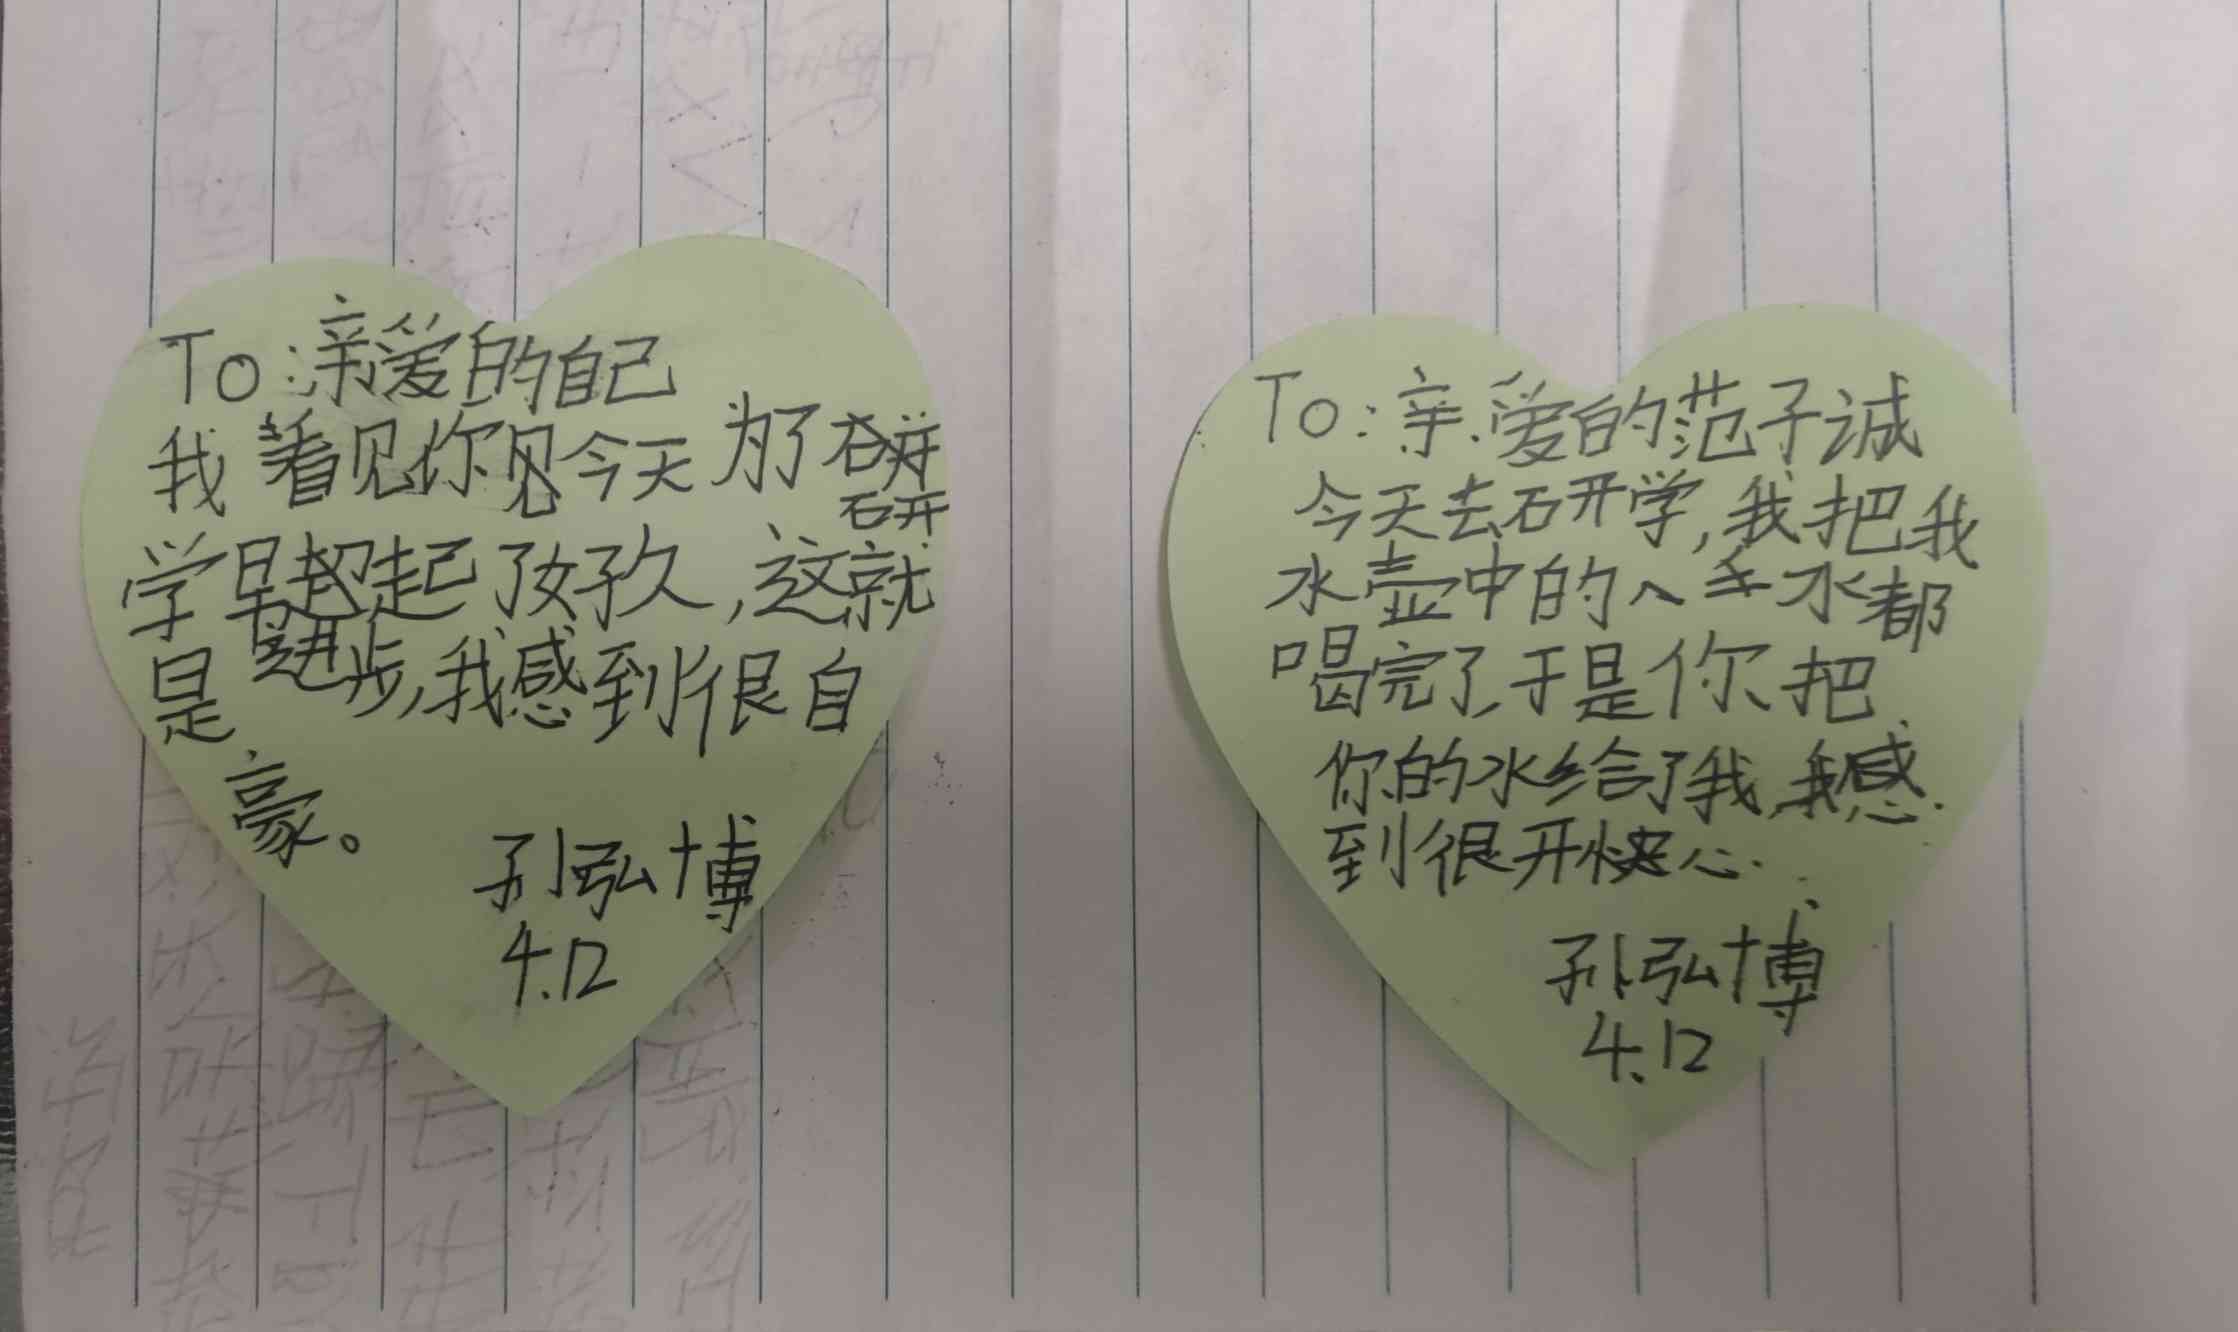 To:亲爱的自己
我看见你见今天为了
研
学早起了好久,这就
是进步,我感到很自
豪。
孙弘博
4.12
To:亲爱的范子诚
今天去研学,我把我
水壶中的水都
喝完了,于是你把
你的水给了我,我感
到很开心.
孙弘博
4.12